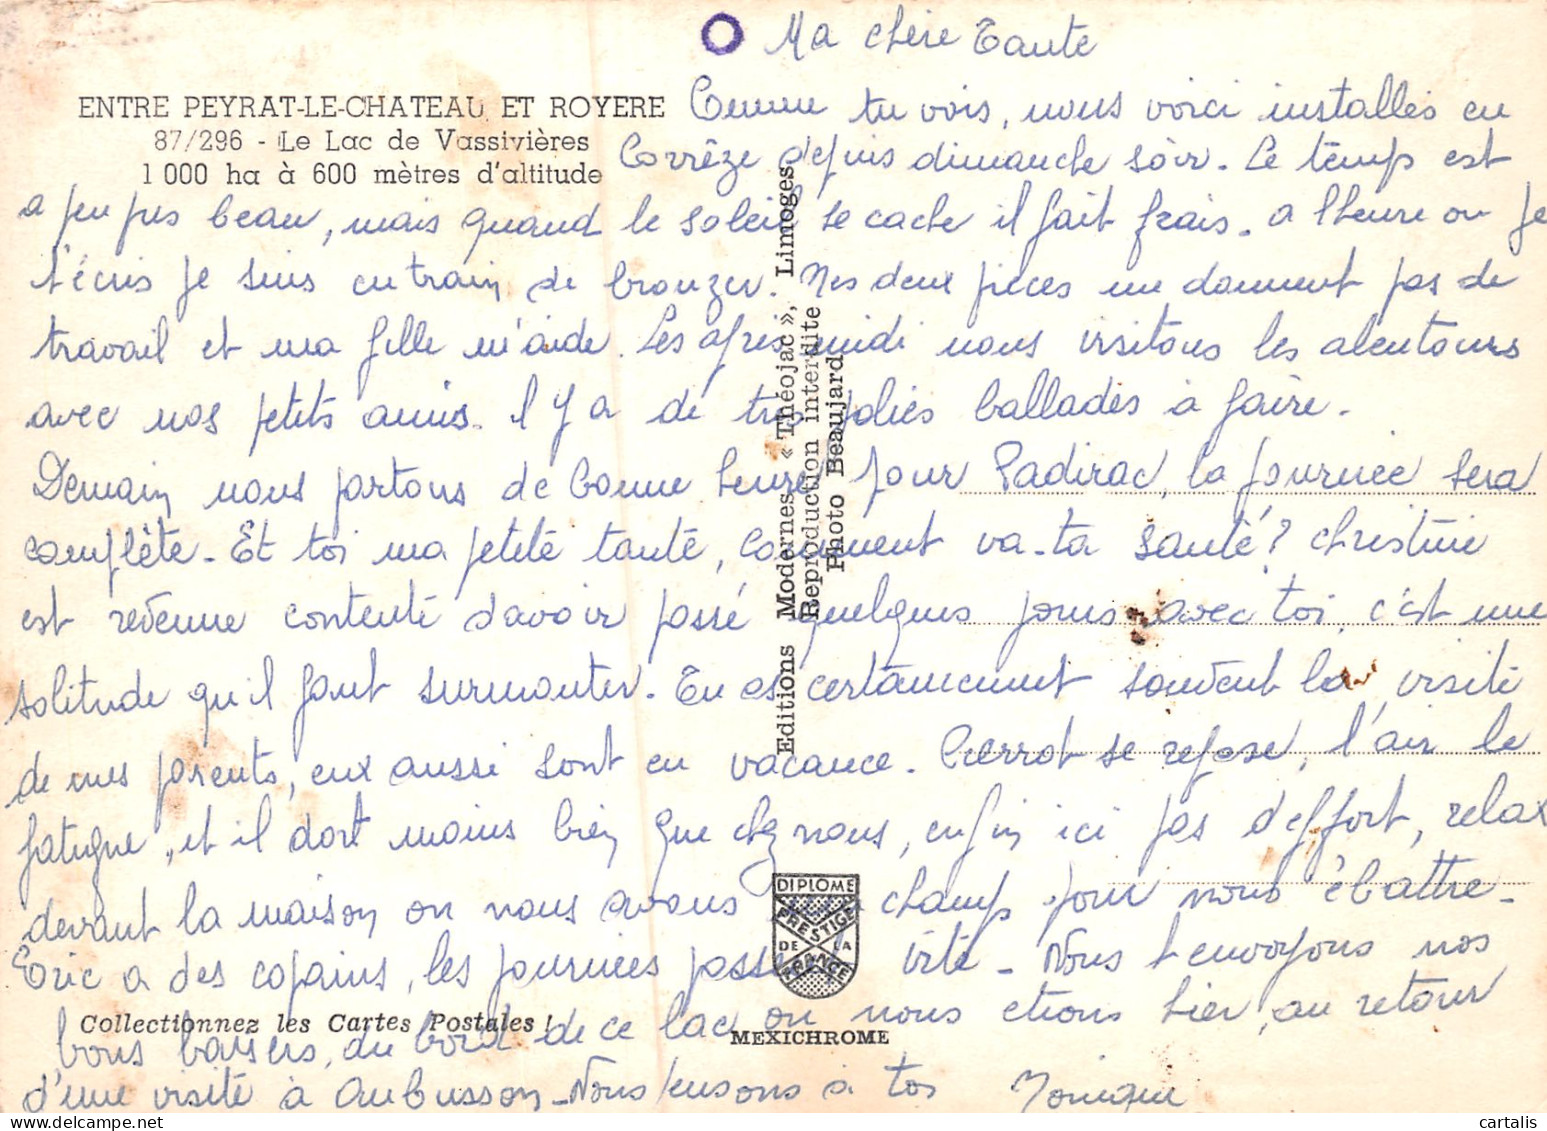 Ma chère Tante
ENTRE PEYRAT-LE-CHATEAU ET ROYERE
87/296 - Le Lac de Vassivières
1 000 ha à 600 mètres d'altitude
Comme tu vois, nous voici installés en
Corrèze depuis dimanche soir. Le temps est
a peu pres beau, mais quand le soleil se cache il fait frais. a l'heure ou je
t'écris je suis en train de bronzer. Mes deux pieces ne donnent pas de
travail et ma fille m'aide. Les après midi nous visitons les alentours
avec nos petits amis. Il y a de tres jolies ballades à faire.
Demain nous partons de bonne heure pour Padirac, la journée sera
complète. Et toi ma petite tante, comment va-ta santé? Christine
est revenue contente d'avoir passé quelques jours avec toi, c'est une
solitude qu'il faut surmonter. Tu as certainement souvent la visite
de mes parents, eux aussi sont en vacance. Pierrot se repose, l'air le
fatigue, et il dort moins bien que chez nous, enfin ici pas d'effort, relax
devant la maison ou nous avons champ pour nous ébattre.
Eric a des copains, les journées passent vite. Nous t'envoyons nos
bons baisers, du bord de ce lac ou nous etions hier, au retour
d'une visite à Aubusson. Nous pensons à toi Monique
Collectionnez les Cartes Postales !
Editions Modernes « Théojac », Limoges.
Reproduction interdite
Photo Beaujard
DIPLOME
PRESTIGE
DE LA
FRANCE
MEXICHROME